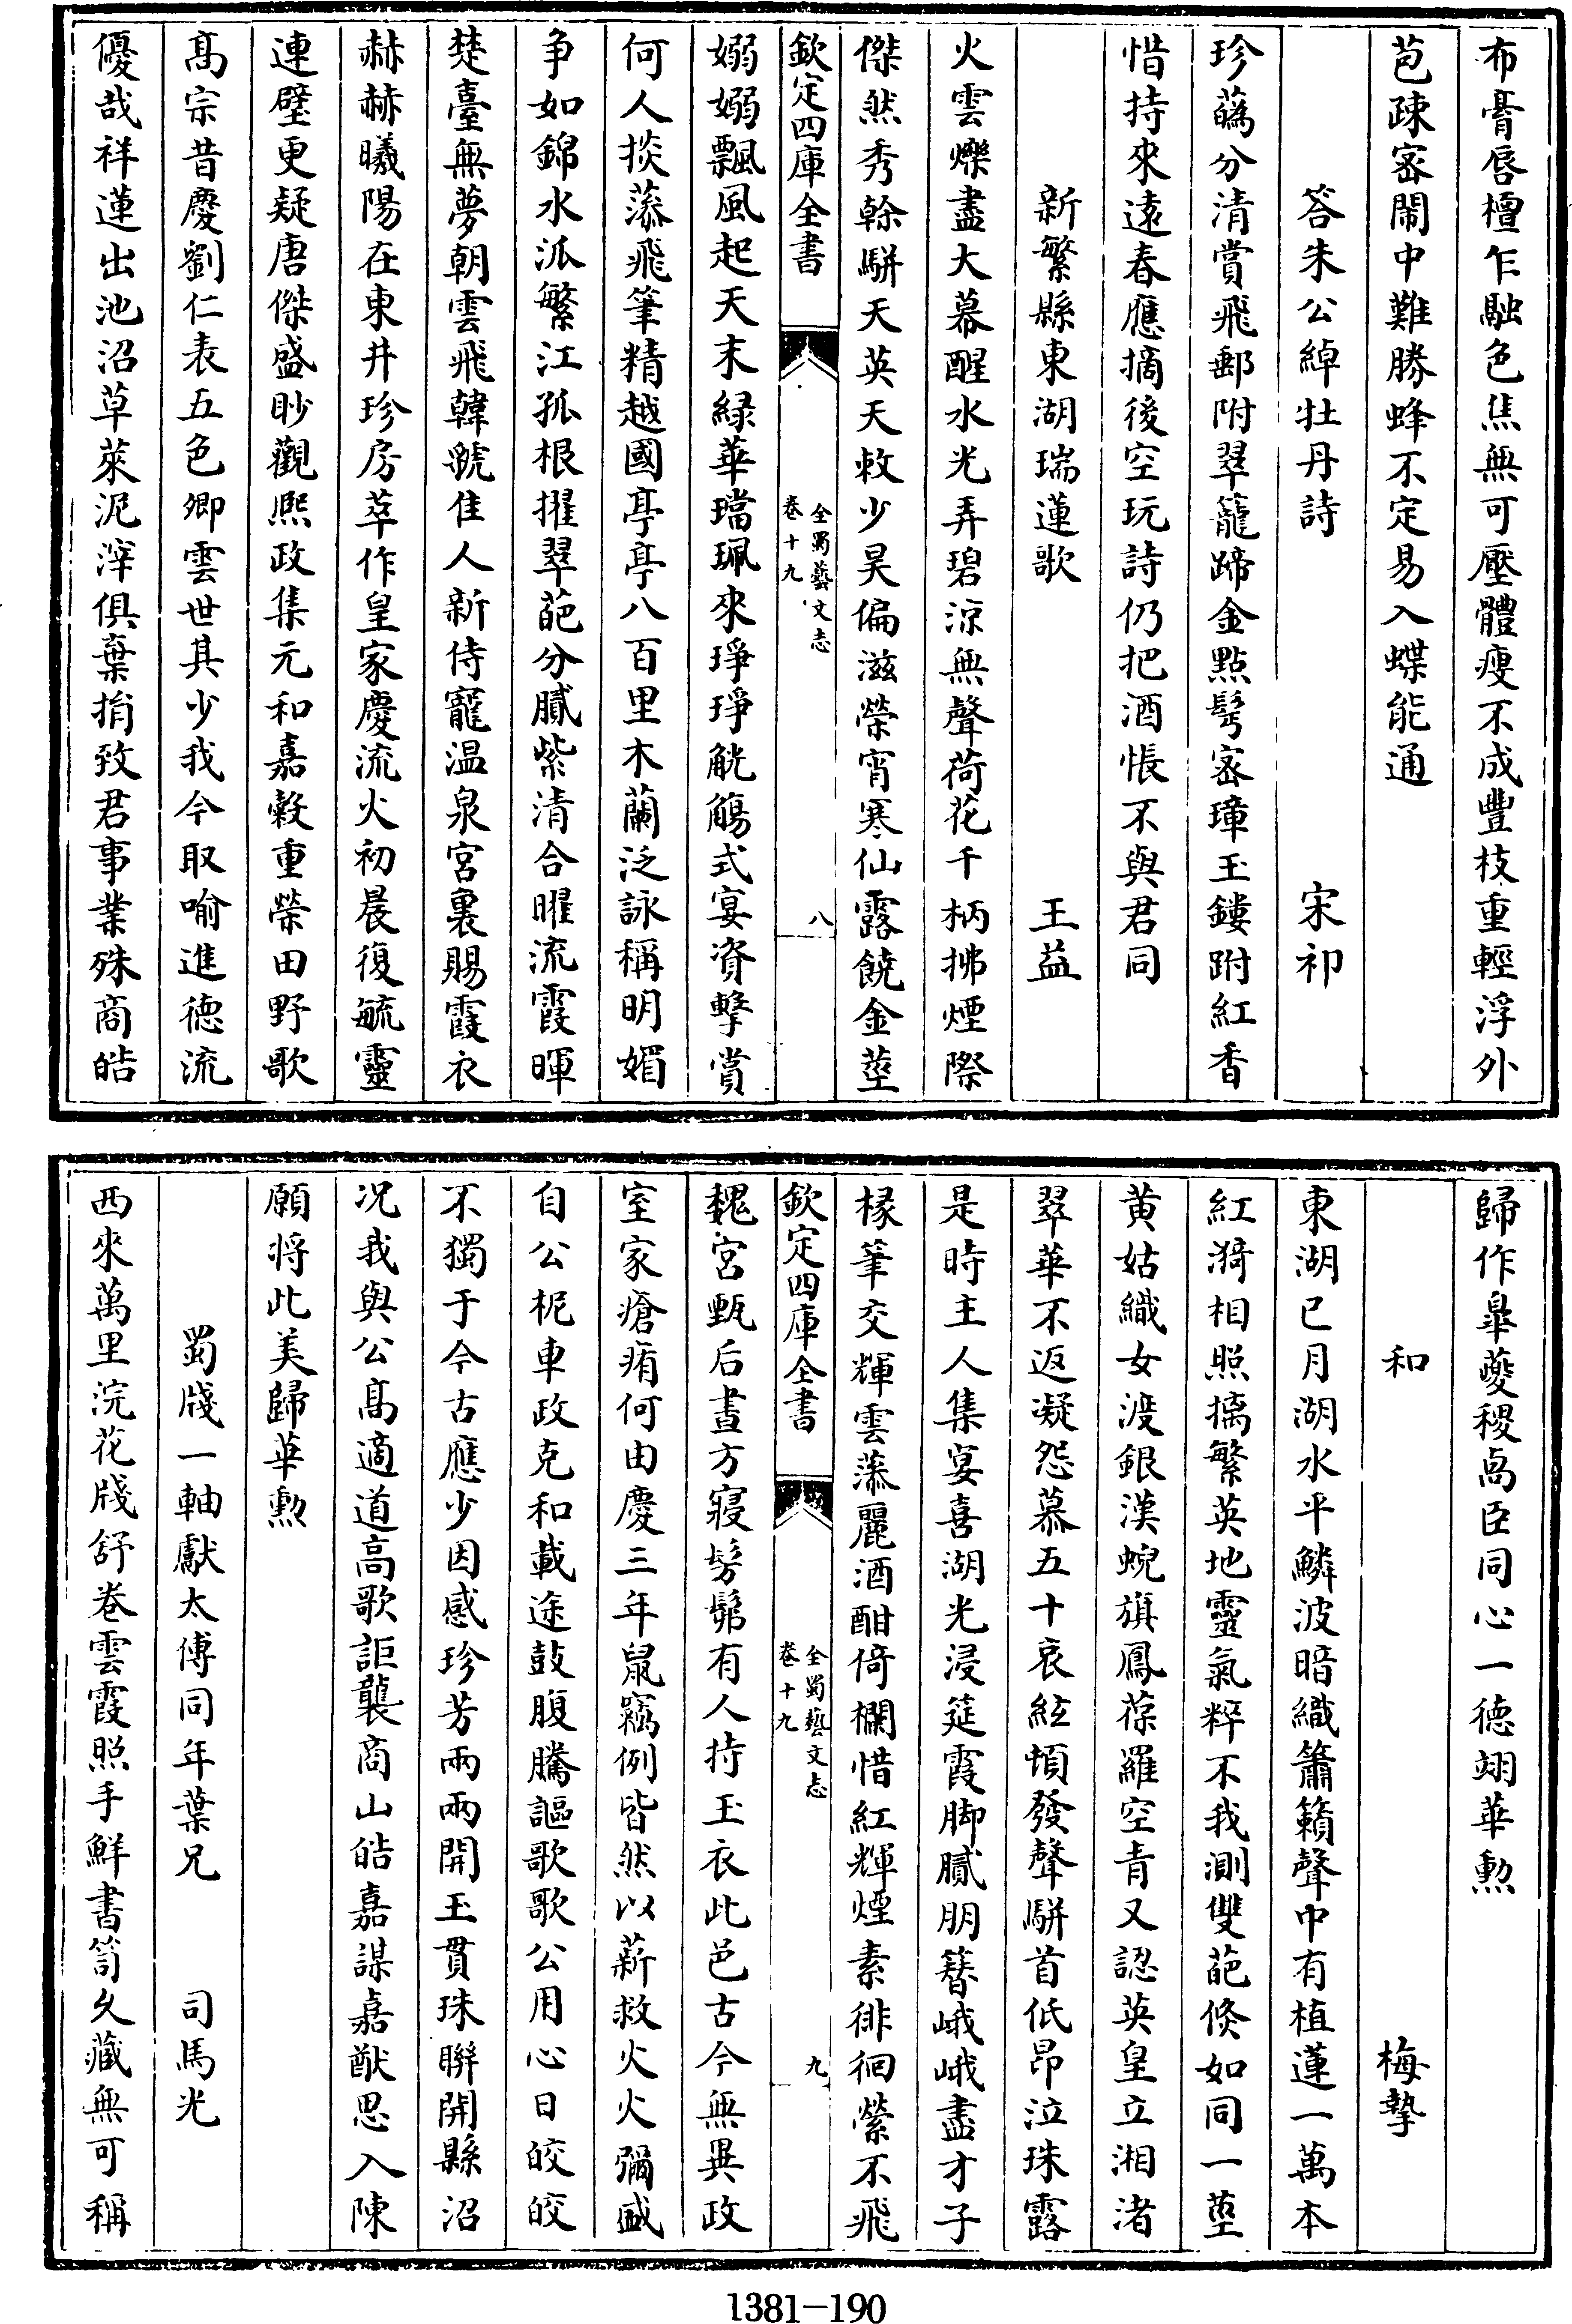 布膏唇檀乍融色焦無可壓體瘦不成豐枝重輕浮外
苞疎密閙中難勝蜂不定易入蝶能通
答朱公綽牡丹詩 宋祁
珍蘤分清賞飛郵附翠籠蹄金㸃髩密璋玉鏤跗紅香
惜持來逺春應摘後空玩詩仍把酒悵不與君同
新繁縣東湖瑞蓮歌 王益
火雲爍盡大幕醒水光弄碧涼無聲荷花千柄拂煙際
傑然秀榦駢天英天敕少昊偏滋榮宵寒仙露饒金莖
欽定四庫全書 全蜀藝文志 卷十九 八
嫋嫋飄風起天末緑華璫珮來琤琤觥觴式宴資擊賞
何人掞藻飛筆精越國亭亭八百里木蘭泛詠稱明媚
争如錦水派繁江孤根擢翠葩分膩紫清合曜流霞暉
楚臺無夢朝雲飛韓虢佳人新侍寵温泉宫裏賜霞衣
赫赫曦陽在東井珍房萃作皇家慶流火初晨復毓靈
連璧更疑唐傑盛眇觀熈政集元和嘉穀重榮田野歌
髙宗昔慶劉仁表五色卿雲世其少我今取喻進德流
優哉祥蓮出池沼草萊泥滓俱棄捐致君事業殊商皓
歸作臯夔稷卨臣同心一德翊華勲
和 梅摯
東湖已月湖水平鱗波暗織簫籟聲中有植蓮一萬本
紅漪相照摛繁英地靈氣粹不我測雙葩倐如同一莖
黄姑織女渡銀漢蜺旗鳳葆羅空青又認英皇立湘渚
翠華不返凝怨慕五十哀絃頓發聲駢首低昂泣珠露
是時主人集宴喜湖光浸筵霞脚膩朋簮峨峨盡才子
椽筆交輝雲藻麗酒酣倚欄惜紅輝煙素徘徊縈不飛
欽定四庫全書 全蜀藝文志 卷十九 九
魏宫甄后晝方寢髣髴有人持玉衣此邑古今無異政
室家瘡痏何由慶三年鼠竊例皆然以薪救火火彌盛
自公柅車政克和載途鼓腹騰謳歌歌公用心日皎皎
不獨于今古應少因感珍芳兩兩開玉貫珠聨開縣沼
况我與公髙適道高歌詎襲商山皓嘉謀嘉猷思入陳
願将此美歸華勲
蜀牋一軸獻太傅同年葉兄 司馬光
西來萬里浣花牋舒卷雲霞照手鮮書笥久藏無可稱
1381-190